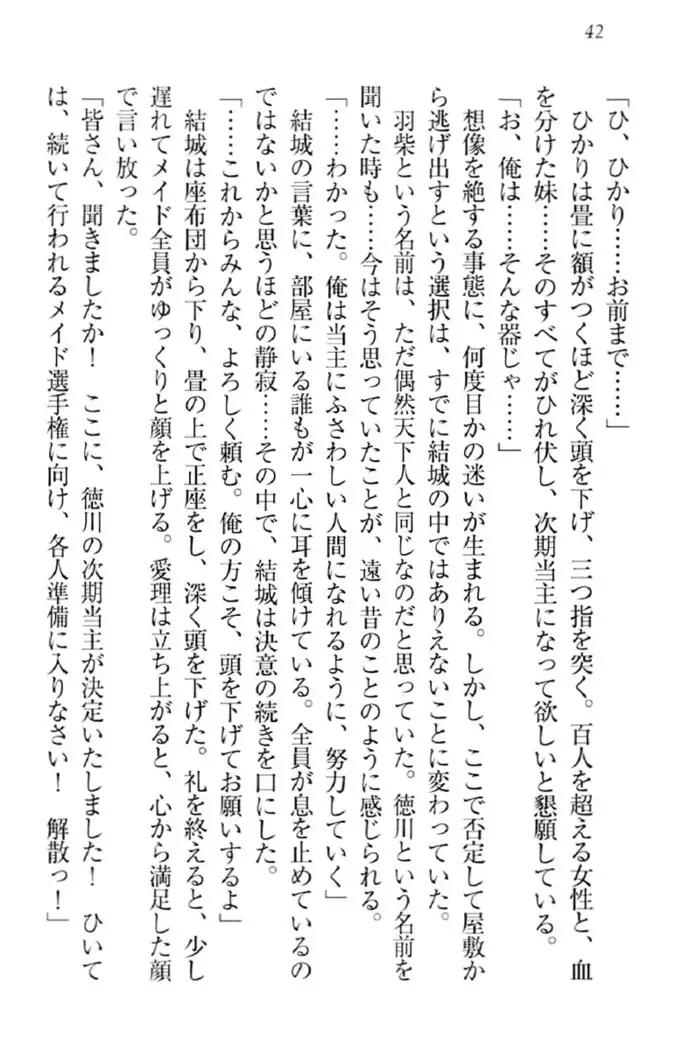 42
「ひ、ひかり……お前まで……」
ひかりは畳に額がつくほど深く頭を下げ、三つ指を突く。百人を超える女性と、血
を分けた妹……そのすべてがひれ伏し、次期当主になって欲しいと懇願している。
「お、俺は……そんな器じゃ……」
想像を絶する事態に、何度目かの迷いが生まれる。しかし、ここで否定して屋敷か
ら逃げ出すという選択は、すでに結城の中ではありえないことに変わっていた。
羽柴という名前は、ただ偶然天下人と同じなのだと思っていた。徳川という名前を
聞いた時も……今はそう思っていたことが、遠い昔のことのように感じられる。
「……わかった。俺は当主にふさわしい人間になれるように、努力していく」
結城の言葉に、部屋にいる誰もが一心に耳を傾けている。全員が息を止めているの
ではないかと思うほどの静寂……その中で、結城は決意の続きを口にした。
「……これからみんな、よろしく頼む。俺の方こそ、頭を下げてお願いするよ」
結城は座布団から下り、畳の上で正座をし、深く頭を下げた。礼を終えると、少し
遅れてメイド全員がゆっくりと顔を上げる。愛理は立ち上がると、心から満足した顔
で言い放った。
「皆さん、聞きましたか！　ここに、徳川の次期当主が決定いたしました！　ひいて
は、続いて行われるメイド選手権に向け、各人準備に入りなさい！　解散っ！」